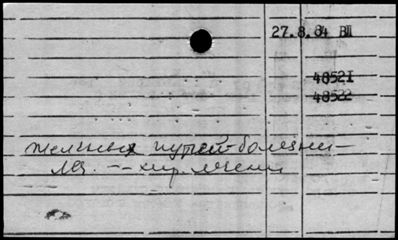 27.8.84 ВП
48521
48522
желчных путей-болезни-
леч. -- хир. лечени